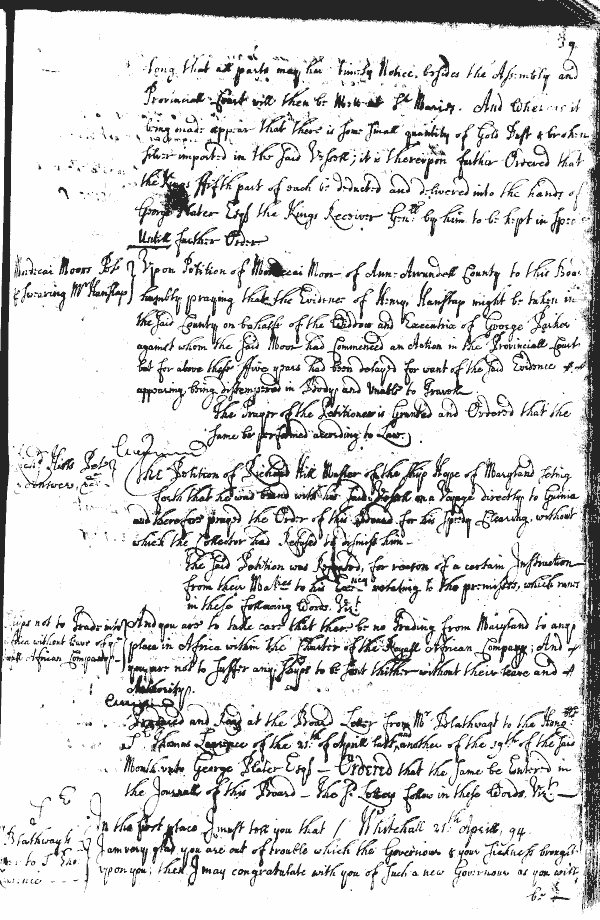 39
long that all parts may have timely Notice, besides the Assembly and
Provinciall Court will then be
And Whereas it
being made appear that there is some small quantity of Gold Dust & broken
silver imported in the said Vessell; it is thereupon further Ordered that
the Kings ffifth part of each be deducted and delivered into the hands of
George Plater Esqr the Kings Receiver Genll by him to be kept in
Untill further Order
Mordecai Moors Petn
Upon Petition of Mordecai Moor of Ann Arundell County to this Board
Swearing Mr Hanslap
humbly praying that the Evidence of Henry Hanslap might be taken in
the said County on behalfe of the Widdow and Executrix of George Parker
against whom the said Moor had Commenced an Action in the Provinciall Court
but for above these ffive years had been delayed for want of the said Evidence
appearing, being distempered in Body and Unable to Travell.
The Prayer of the Petitioner is Granted and Ordered that the
same be performed according to Law.
Hills Petn
The Petition of Richard Hill Master of the ship Hope of Maryland seting
Answer
forth that he was bound with his said Vessell on a Voyage directly to Guinia
and therefore prayed the Order of this Board for his speedy Clearing, without
which the Collector had Refused to dismiss him.
The said Petition was Rejected, for reason of a certain Instruction
from their Maties to his Excncy relating to the premisses, which runs
in these following Words. Vizt
Ships not to Trade into
And you are to take care that there be no Trading from Maryland to any
Africa without leave of ye
place in Africa within the Charter of the Royall African Company; And
African Company
you are not to suffer any shipps to be sent thither without their leave and
Authority.
Produced and Read at the Board Letter from Mr Blathwayt to the Honble
Sr Thomas Laurence of the 21th of Aprill last, and another of the 19th of the said
Month unto George Plater Esqr — Ordered that the same be Entered in
the Journall of this Board — The sd Letters follow in these Words. Vizt
Blathwayts
Sr
Whitehall 21th Aprill, 94
In the first place I must tell you that
to Tho
I am very glad you are out of trouble which the Governour & your sickness brought
Laurence
upon you; then I may congratulate with you of such a new Governour as you will
be